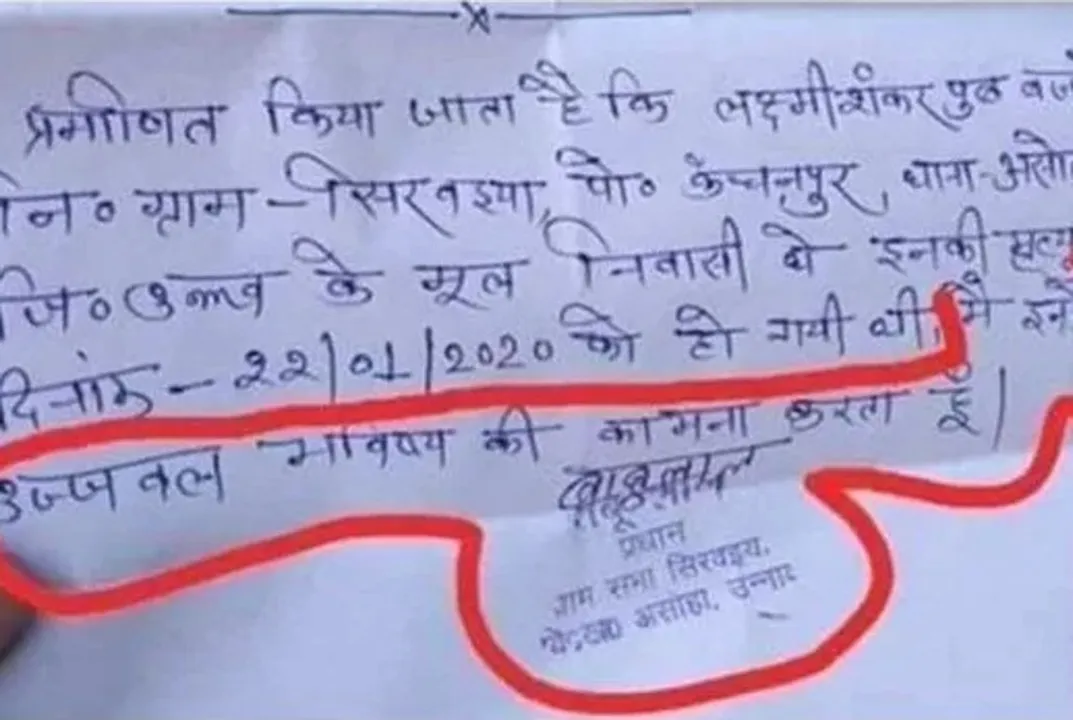 प्रमाणित किया जाता है कि लक्ष्मीशंकर पुत्र
नि० ग्राम - सिरवइया, पो० कंचनपुर, थाना-
जि० उन्नाव के मूल निवासी थे इनकी मृत्यु
दिनांक - 22/01/2020 को हो गयी थी, मै
उज्जवल भविष्य की कामना करता हूँ।
बाबूलाल
प्रधान
ग्राम सभा सिरवइया,
असोहा, उन्नाव